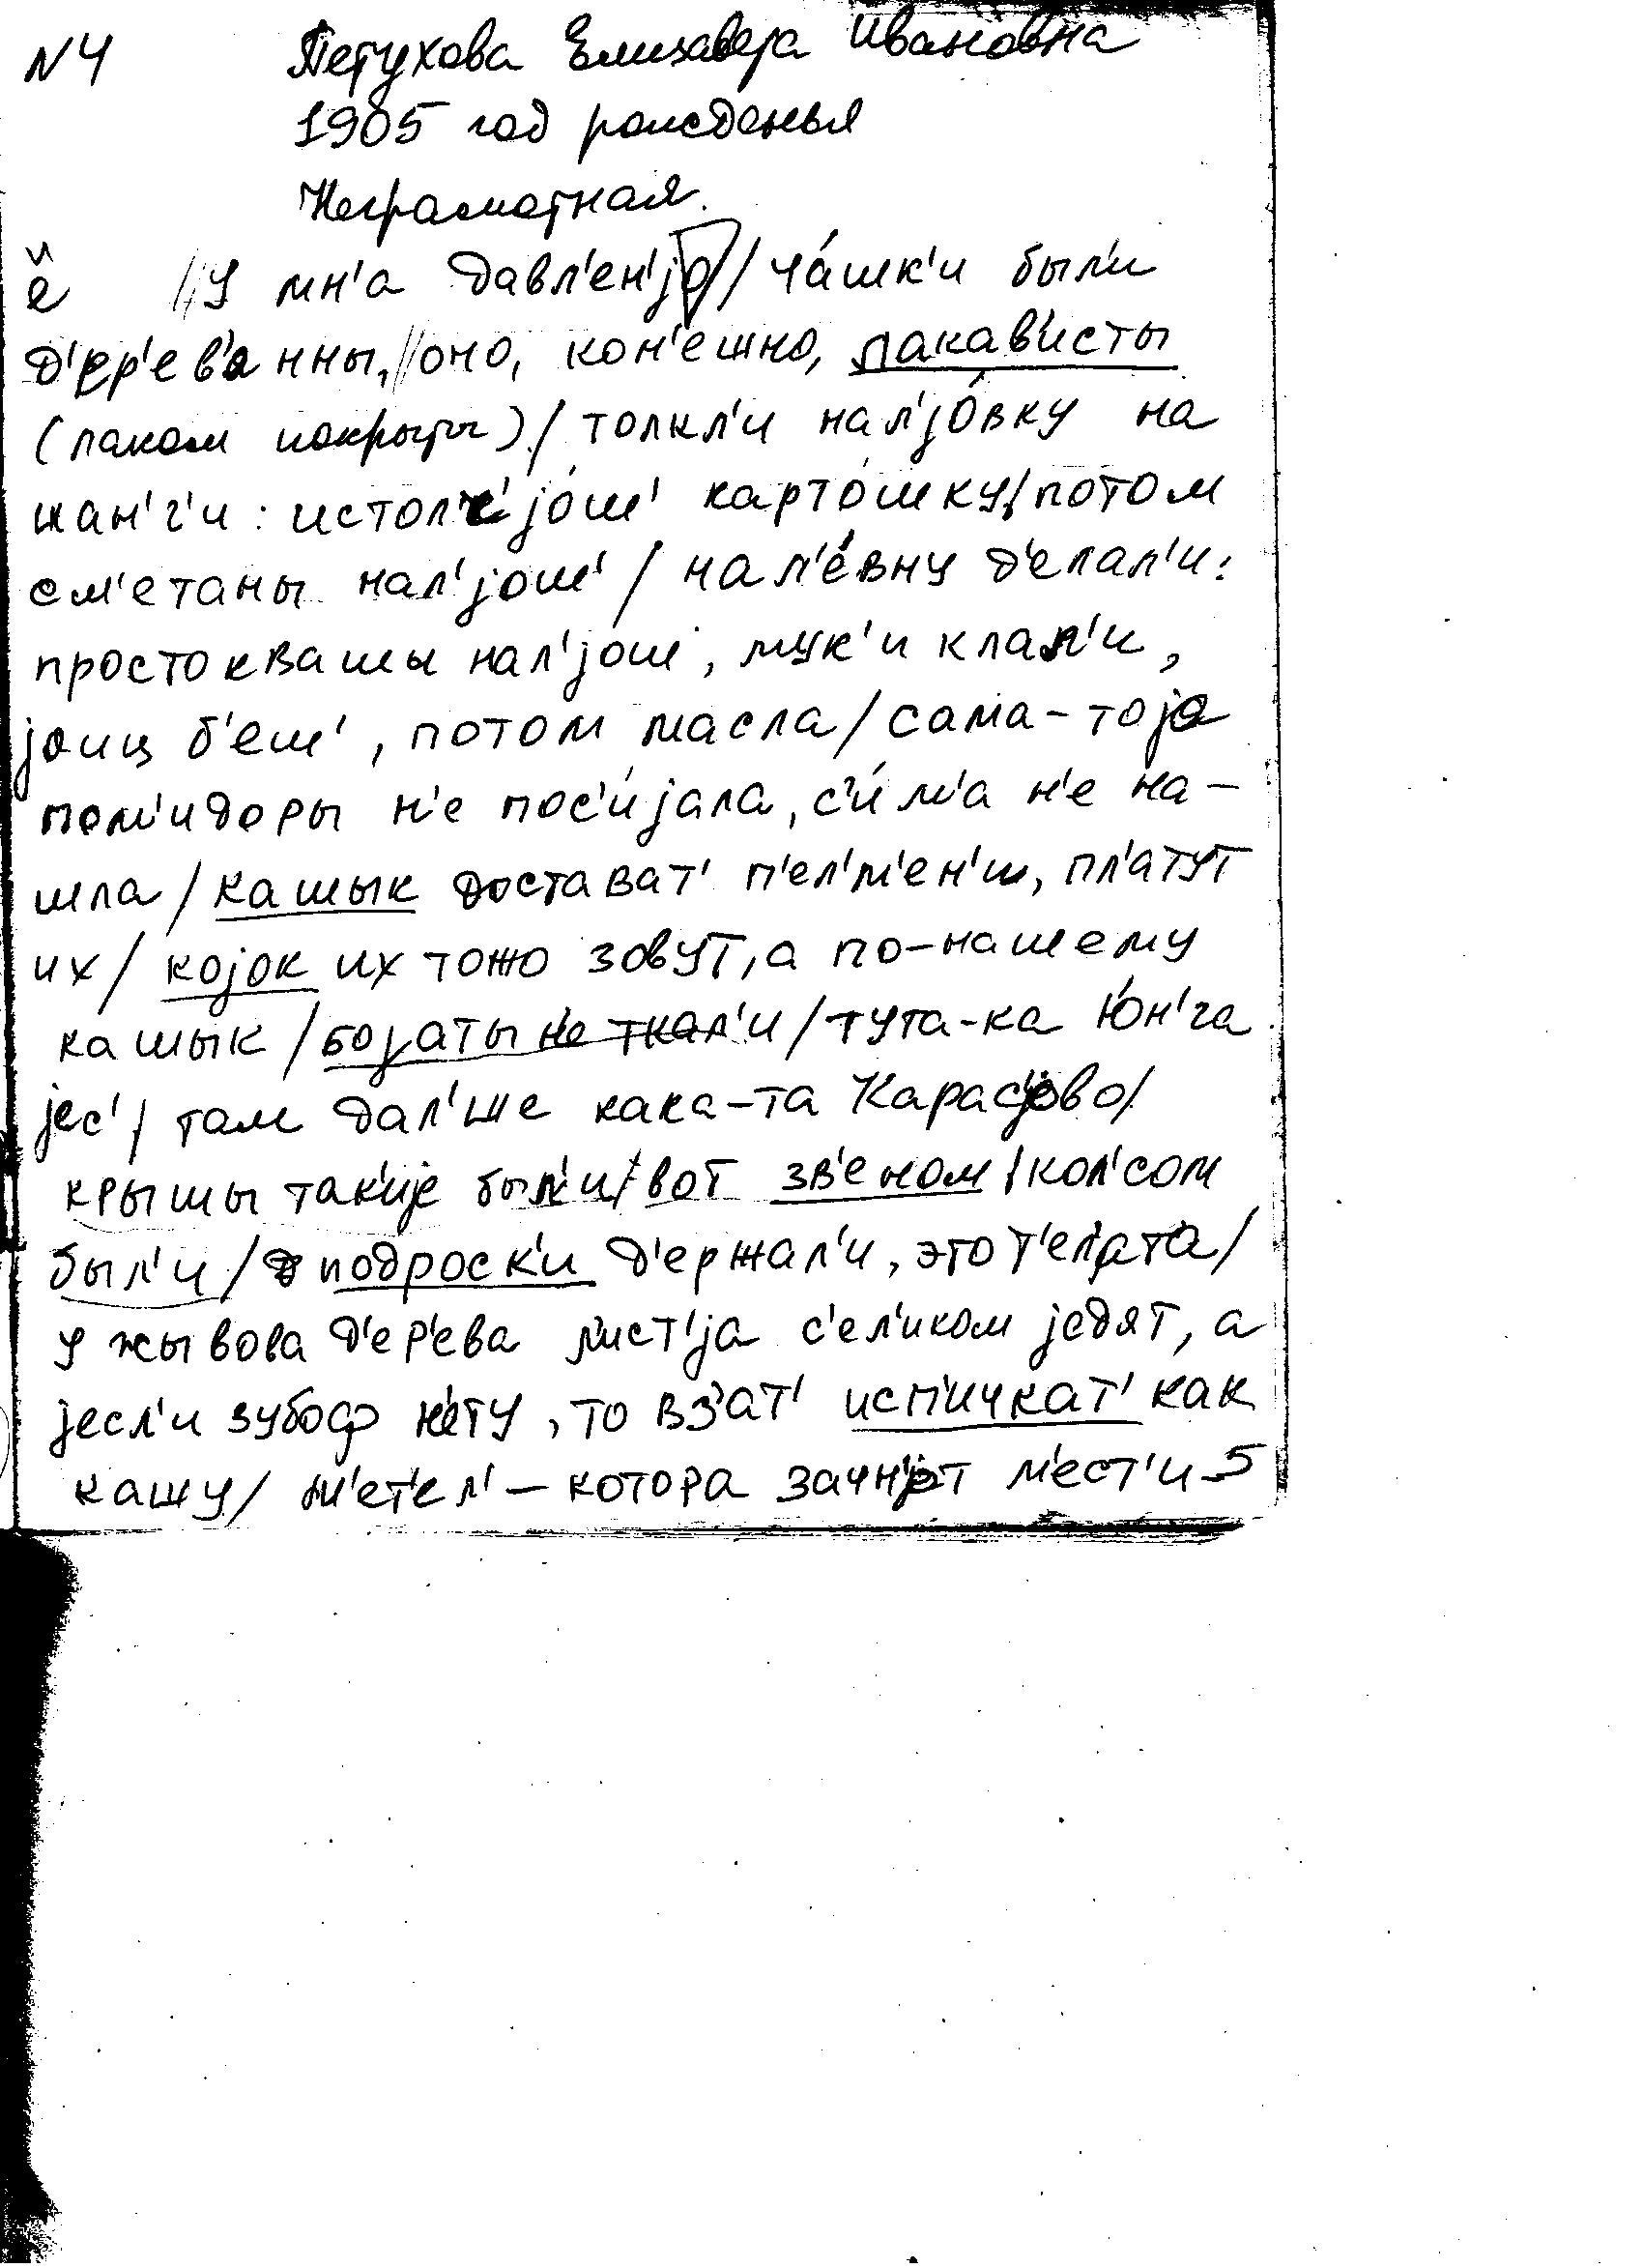 N 4 Петухова Елизавета Ивановна
1905 год рожденья
Неграмотная.
ӥ
е // У мн'а давл'ен'јо // ча́шк'и был'и
д'ер'ев'а нны, // оно, кон'ешно, лакав'исты
(лаком покрыты) / толкл'и нал'јо́вку на
шан'г'и : истолк'јо́ш' карто́шку / потом
см'етаны нал'још' / нал'е́вну д'елал'и :
простоквашы нал'још, мук'и клал'и,
јоиц б'еш', потом масла / сама-тоја
пом'идоры н'е пос'и́јала, с'и́м'а н'е на-
шла / кашык достават' п'ел'м'ен'и, пл'атут
их / којок их тожо зовут, а по-нашему
кашык / богаты н'е ткал'и / тута-ка Ю́н'га
јес' / там дал'ше кака-та Карас'јово /
крышы так'ије был'и / вот зв'еном / кол'сом
был'и / подроск'и д'ержал'и, это т'ел'ата /
у жывова д'ер'ева л'ист'ја с'ел'иком једят, а
јесл'и зубоф н'ету, то вз'ат' исп'ичкат' как
кашу / м'ет'ел' – котора зачн'јот м'ест'и 5